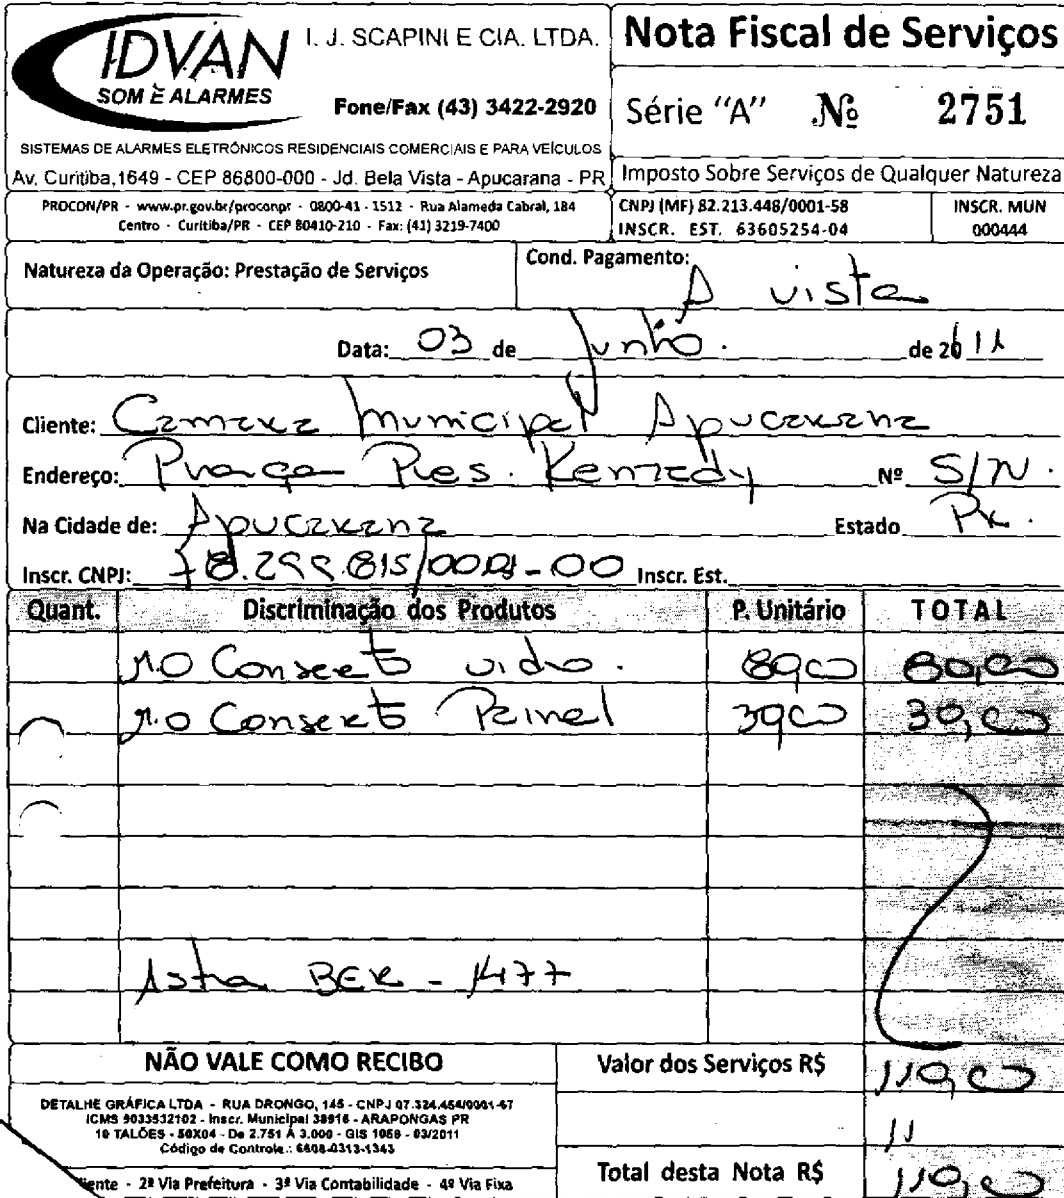 IDVAN
SOM E ALARMES
I. J. SCAPINI E CIA. LTDA.
Fone/Fax (43) 3422-2920
SISTEMAS DE ALARMES ELETRÔNICOS RESIDENCIAIS COMERCIAIS E PARA VEÍCULOS
Av. Curitiba,1649 - CEP 86800-000 - Jd. Bela Vista - Apucarana - PR
Nota Fiscal de Serviços
Série "A" Nº 2751
Imposto Sobre Serviços de Qualquer Natureza
PROCON/PR - www.pr.gov.br/proconpr - 0800-41 - 1512 - Rua Alameda Cabral, 184
Centro - Curitiba/PR - CEP 80410-210 - Fax: (41) 3219-7400
CNPJ (MF) 82.213.448/0001-58
INSCR. EST. 63605254-04
INSCR. MUN
000444
Natureza da Operação: Prestação de Serviços
Cond. Pagamento: A vista
Data: 03 de Junho. de 2011
Cliente: Camara Municipal Apucarana
Endereço: Praça Pres. Kennedy Nº S/N.
Na Cidade de: Apucarana Estado Pr.
Inscr. CNPJ: 78.299.815/0001-00 Inscr. Est.
Quant. Discriminação dos Produtos P. Unitário TOTAL
M.O Conserto vidro. 80,00 80,00
M.O Conserto Painel 30,00 30,00
Astra BER - 1477
NÃO VALE COMO RECIBO
DETALHE GRÁFICA LTDA - RUA DRONGO, 145 - CNPJ 07.324.454/0001-67
ICMS 9033532102 - Inscr. Municipal 38916 - ARAPONGAS PR
10 TALÕES - 50X04 - De 2.751 A 3.000 - GIS 1058 - 03/2011
Código de Controle.: 6608-0313-1343
iente - 2ª Via Prefeitura - 3ª Via Contabilidade - 4ª Via Fixa
Valor dos Serviços R$ 110,00
11
Total desta Nota R$ 110,00